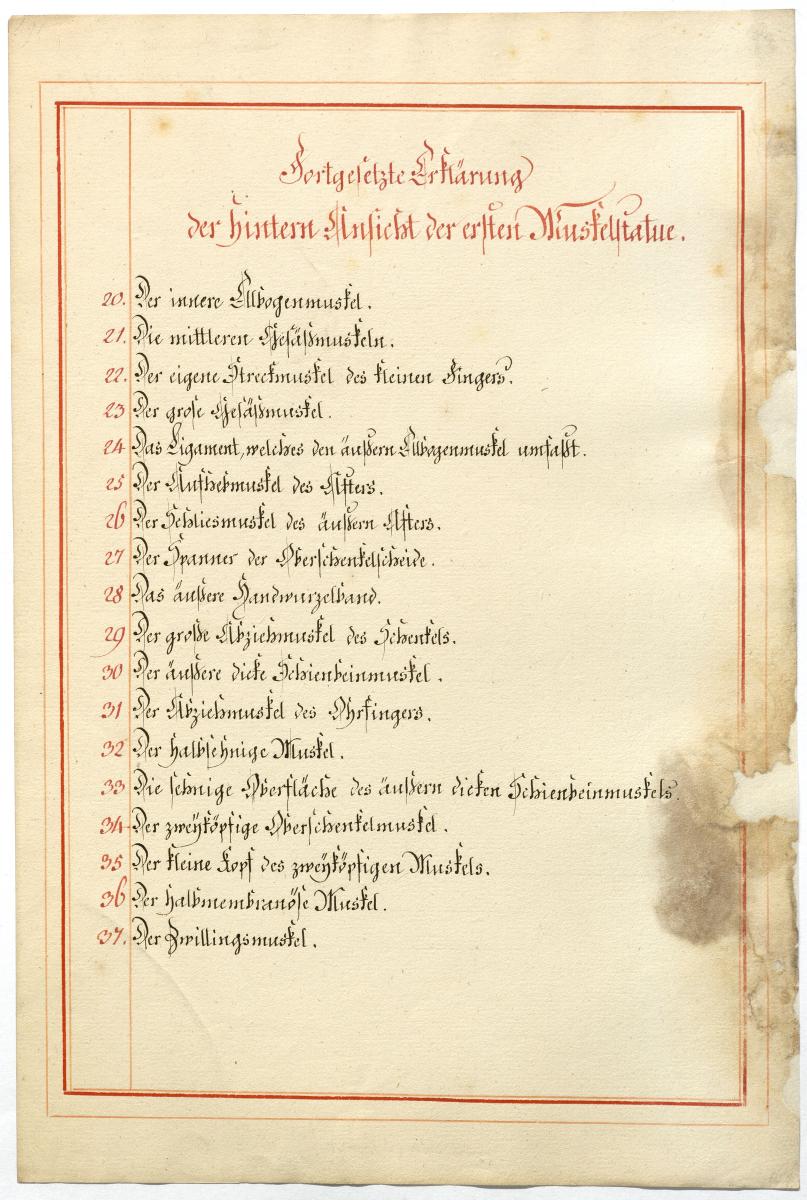 Fortgesetzte Erklärung
der hintern Ansicht der ersten Muskelstatue.
20. Der innere Ellbogenmuskel.
21. Die mittleren Gesäßmuskeln.
22. Der eigene Streckmuskel des kleinen Fingers.
23 Der grose Gesäßmuskel.
24 Das Ligament, welches den äußern Ellbogenmuskel umfaßt.
25 Der Aufhebmuskel des Afters.
26 Der Schliesmuskel des äußern Afters.
27 Der Spanner der Oberschenkelscheide.
28 Das äußere Handwurzelband.
29 Der große Abziehmuskel des Schenkels.
30 Der äußere dicke Schienbeinmuskel.
31 Der Abziehmuskel des Ohrfingers.
32 Der halbsehnige Muskel.
33 Die sehnige Oberfläche des äußern dicken Schienbeinmuskels.
34 Der zweyköpfige Oberschenkelmuskel.
35 Der kleine Kopf des zweyköpfigen Muskels.
36 Der halbmembranöse Muskel.
37. Der Zwillingsmuskel.